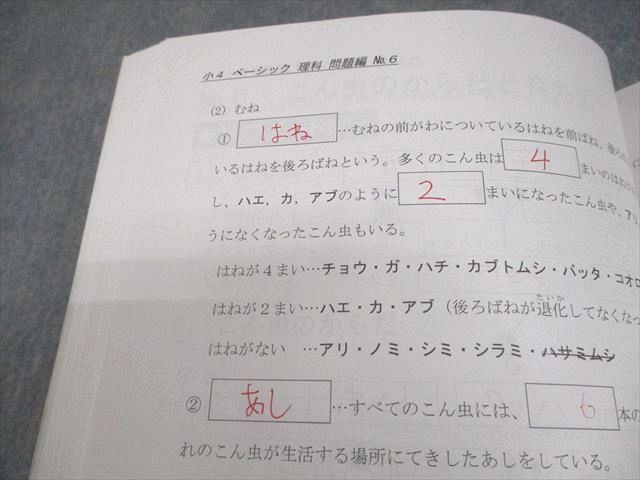 小4 ベーシック 理科 問題編 No.6
(2) むね
① はね …むねの前がわについているはねを前ばね、後ろ
いるはねを後ろばねという。多くのこん虫は 4 まいのはね
し、ハエ，カ，アブのように 2 まいになったこん虫や、ア
うになくなったこん虫もいる。
はねが4まい…チョウ・ガ・ハチ・カブトムシ・バッタ・コオロ
はねが2まい…ハエ・カ・アブ（後ろばねが退化してなくなっ
たいか
はねがない …アリ・ノミ・シミ・シラミ・ハサミムシ
② あし …すべてのこん虫には、 6 本の
れのこん虫が生活する場所にてきしたあしをしている。